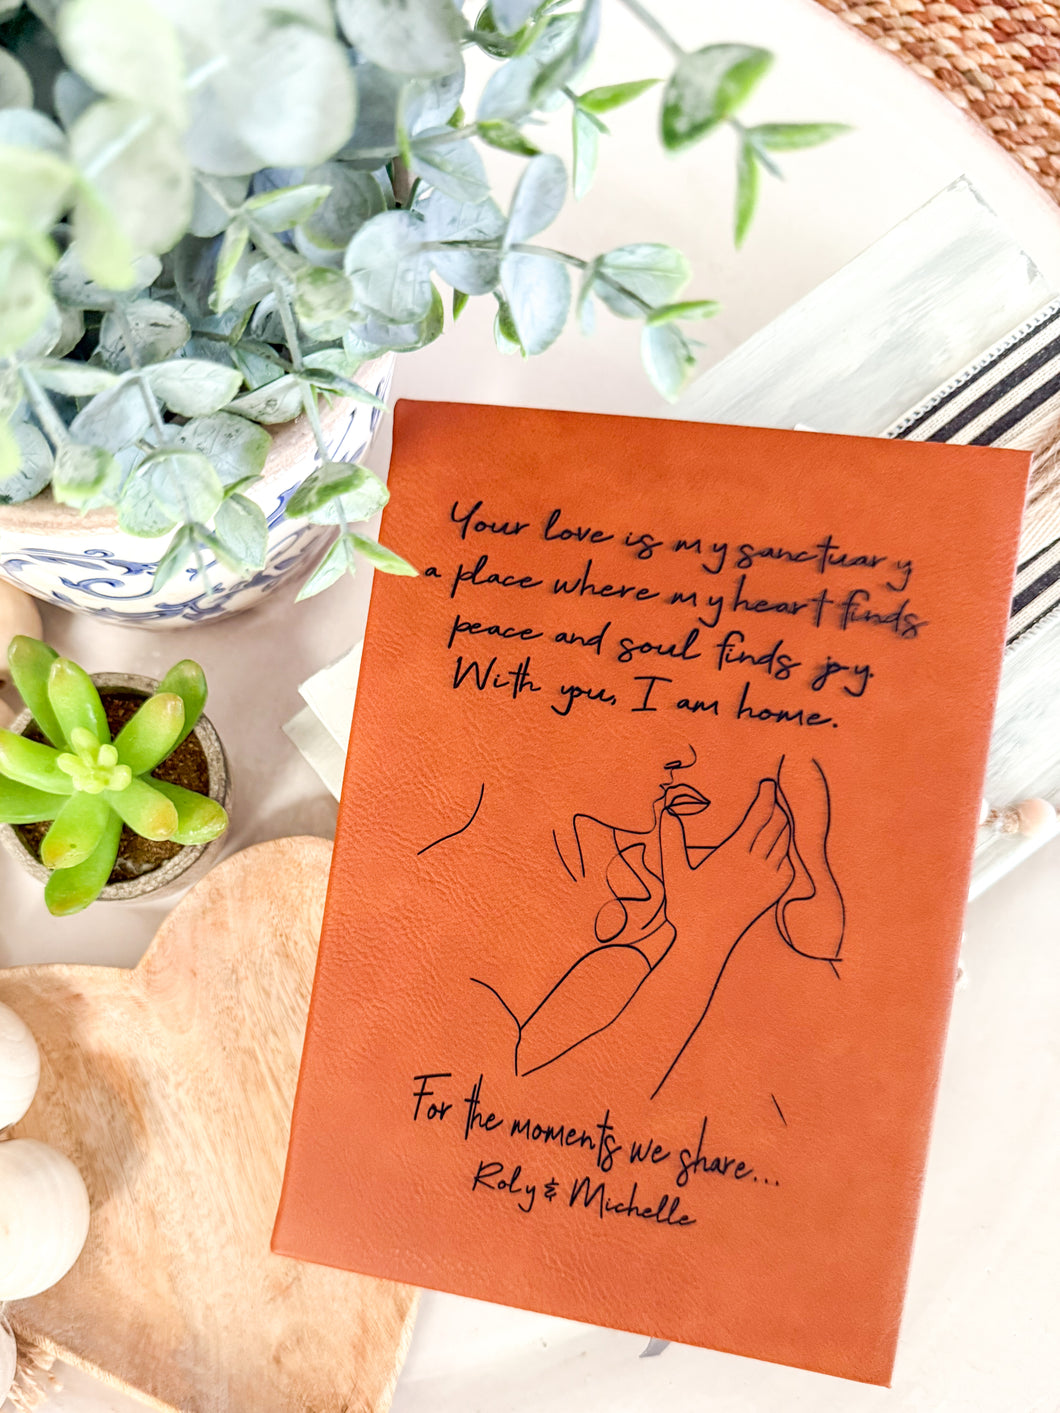 Your love is my sanctuary
a place where my heart finds
peace and soul finds joy.
With you, I am home.
For the moments we share...
Roly & Michelle